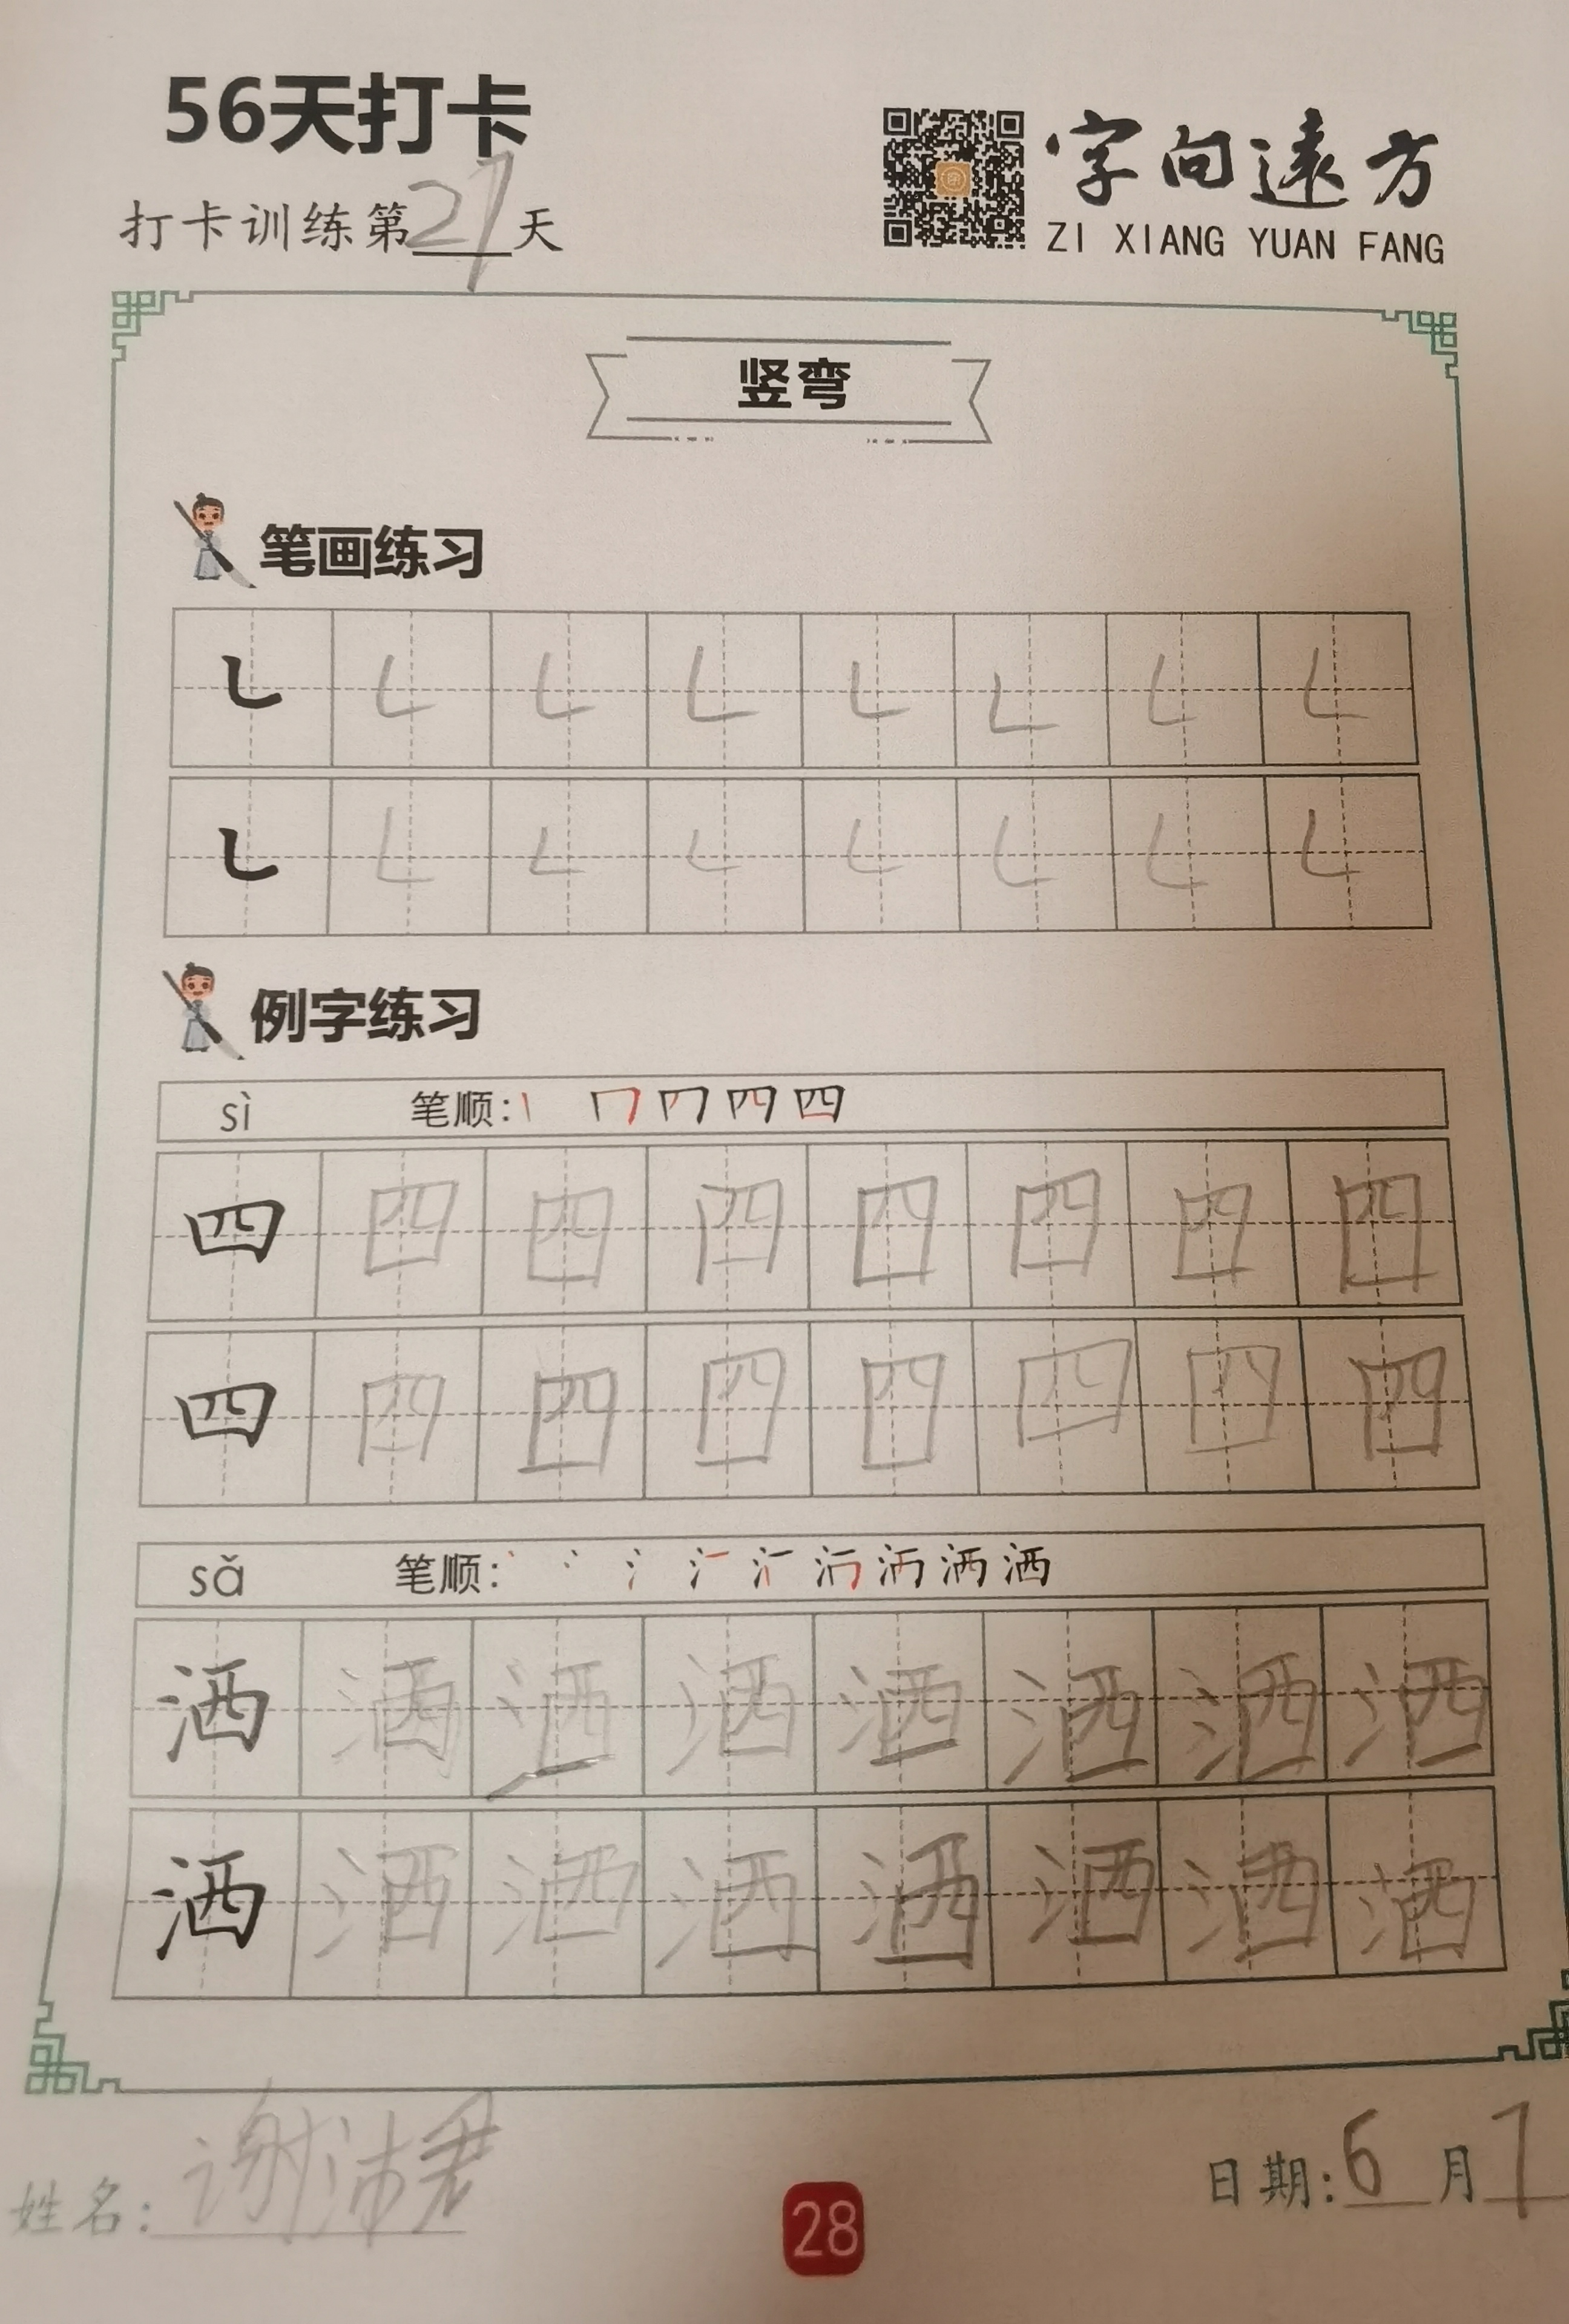 56天打卡
打卡训练第27天
字向遠方
ZI XIANG YUAN FANG
竖弯
笔画练习
㇄ ㇄ ㇄ ㇄ ㇄ ㇄ ㇄ ㇄
㇄ ㇄ ㇄ ㇄ ㇄ ㇄ ㇄ ㇄
例字练习
sì 笔顺:
四 四 四 四 四 四 四 四
四 四 四 四 四 四 四 四
sǎ 笔顺:
洒 洒 洒 洒 洒 洒 洒 洒
洒 洒 洒 洒 洒 洒 洒 洒
姓名:谢沛君
28
日期:6月7